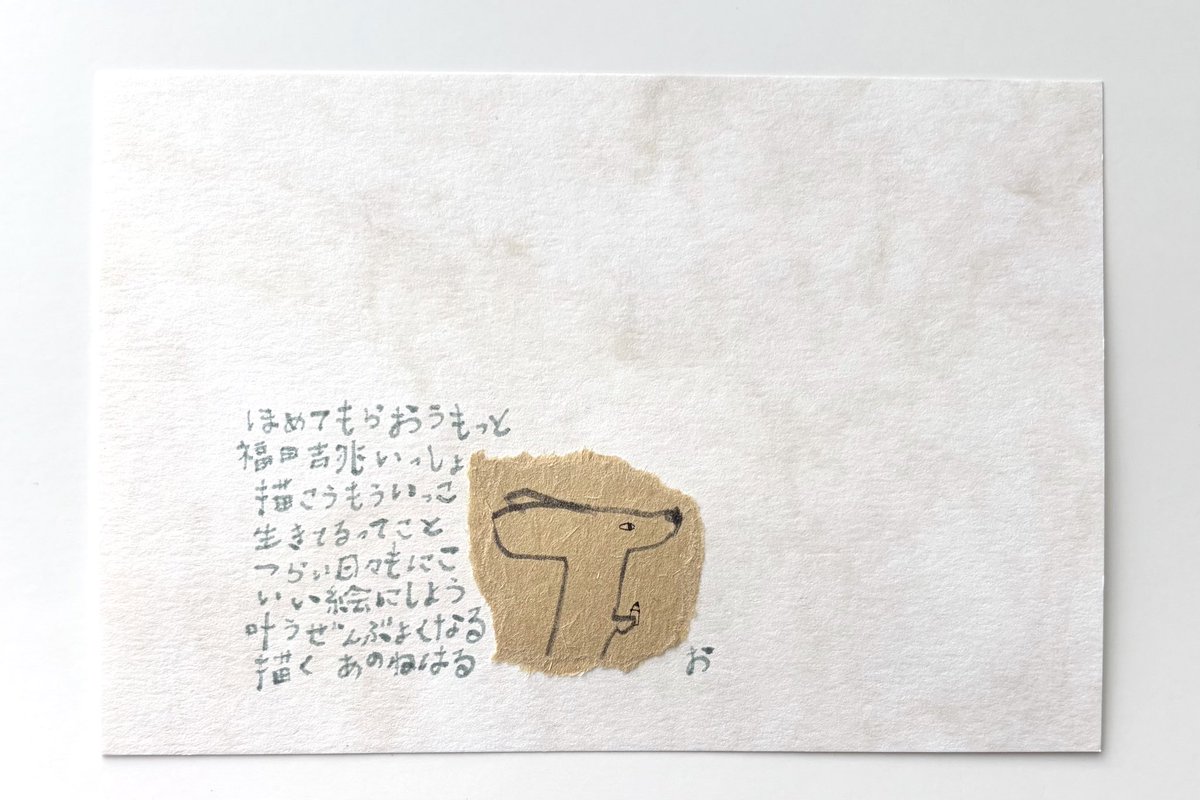 ほめてもらおうもっと
福田吉兆いっしょ
描こうもういっこ
生きてるってこと
つらい日々もにこ
いい絵にしよう
叶うぜんぶよくなる
描く あのねはる
お